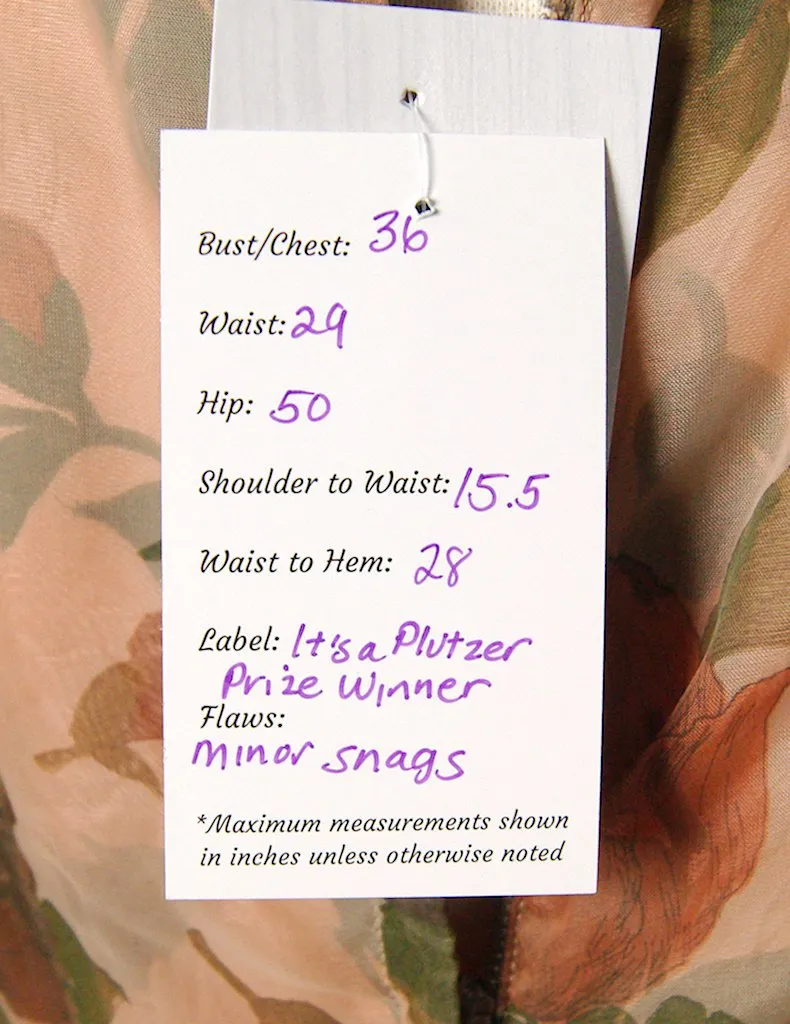 Bust/Chest: 36
Waist: 29
Hip: 50
Shoulder to Waist: 15.5
Waist to Hem: 28
Label: It's a Plutzer
Prize Winner
Flaws:
minor snags
*Maximum measurements shown
in inches unless otherwise noted